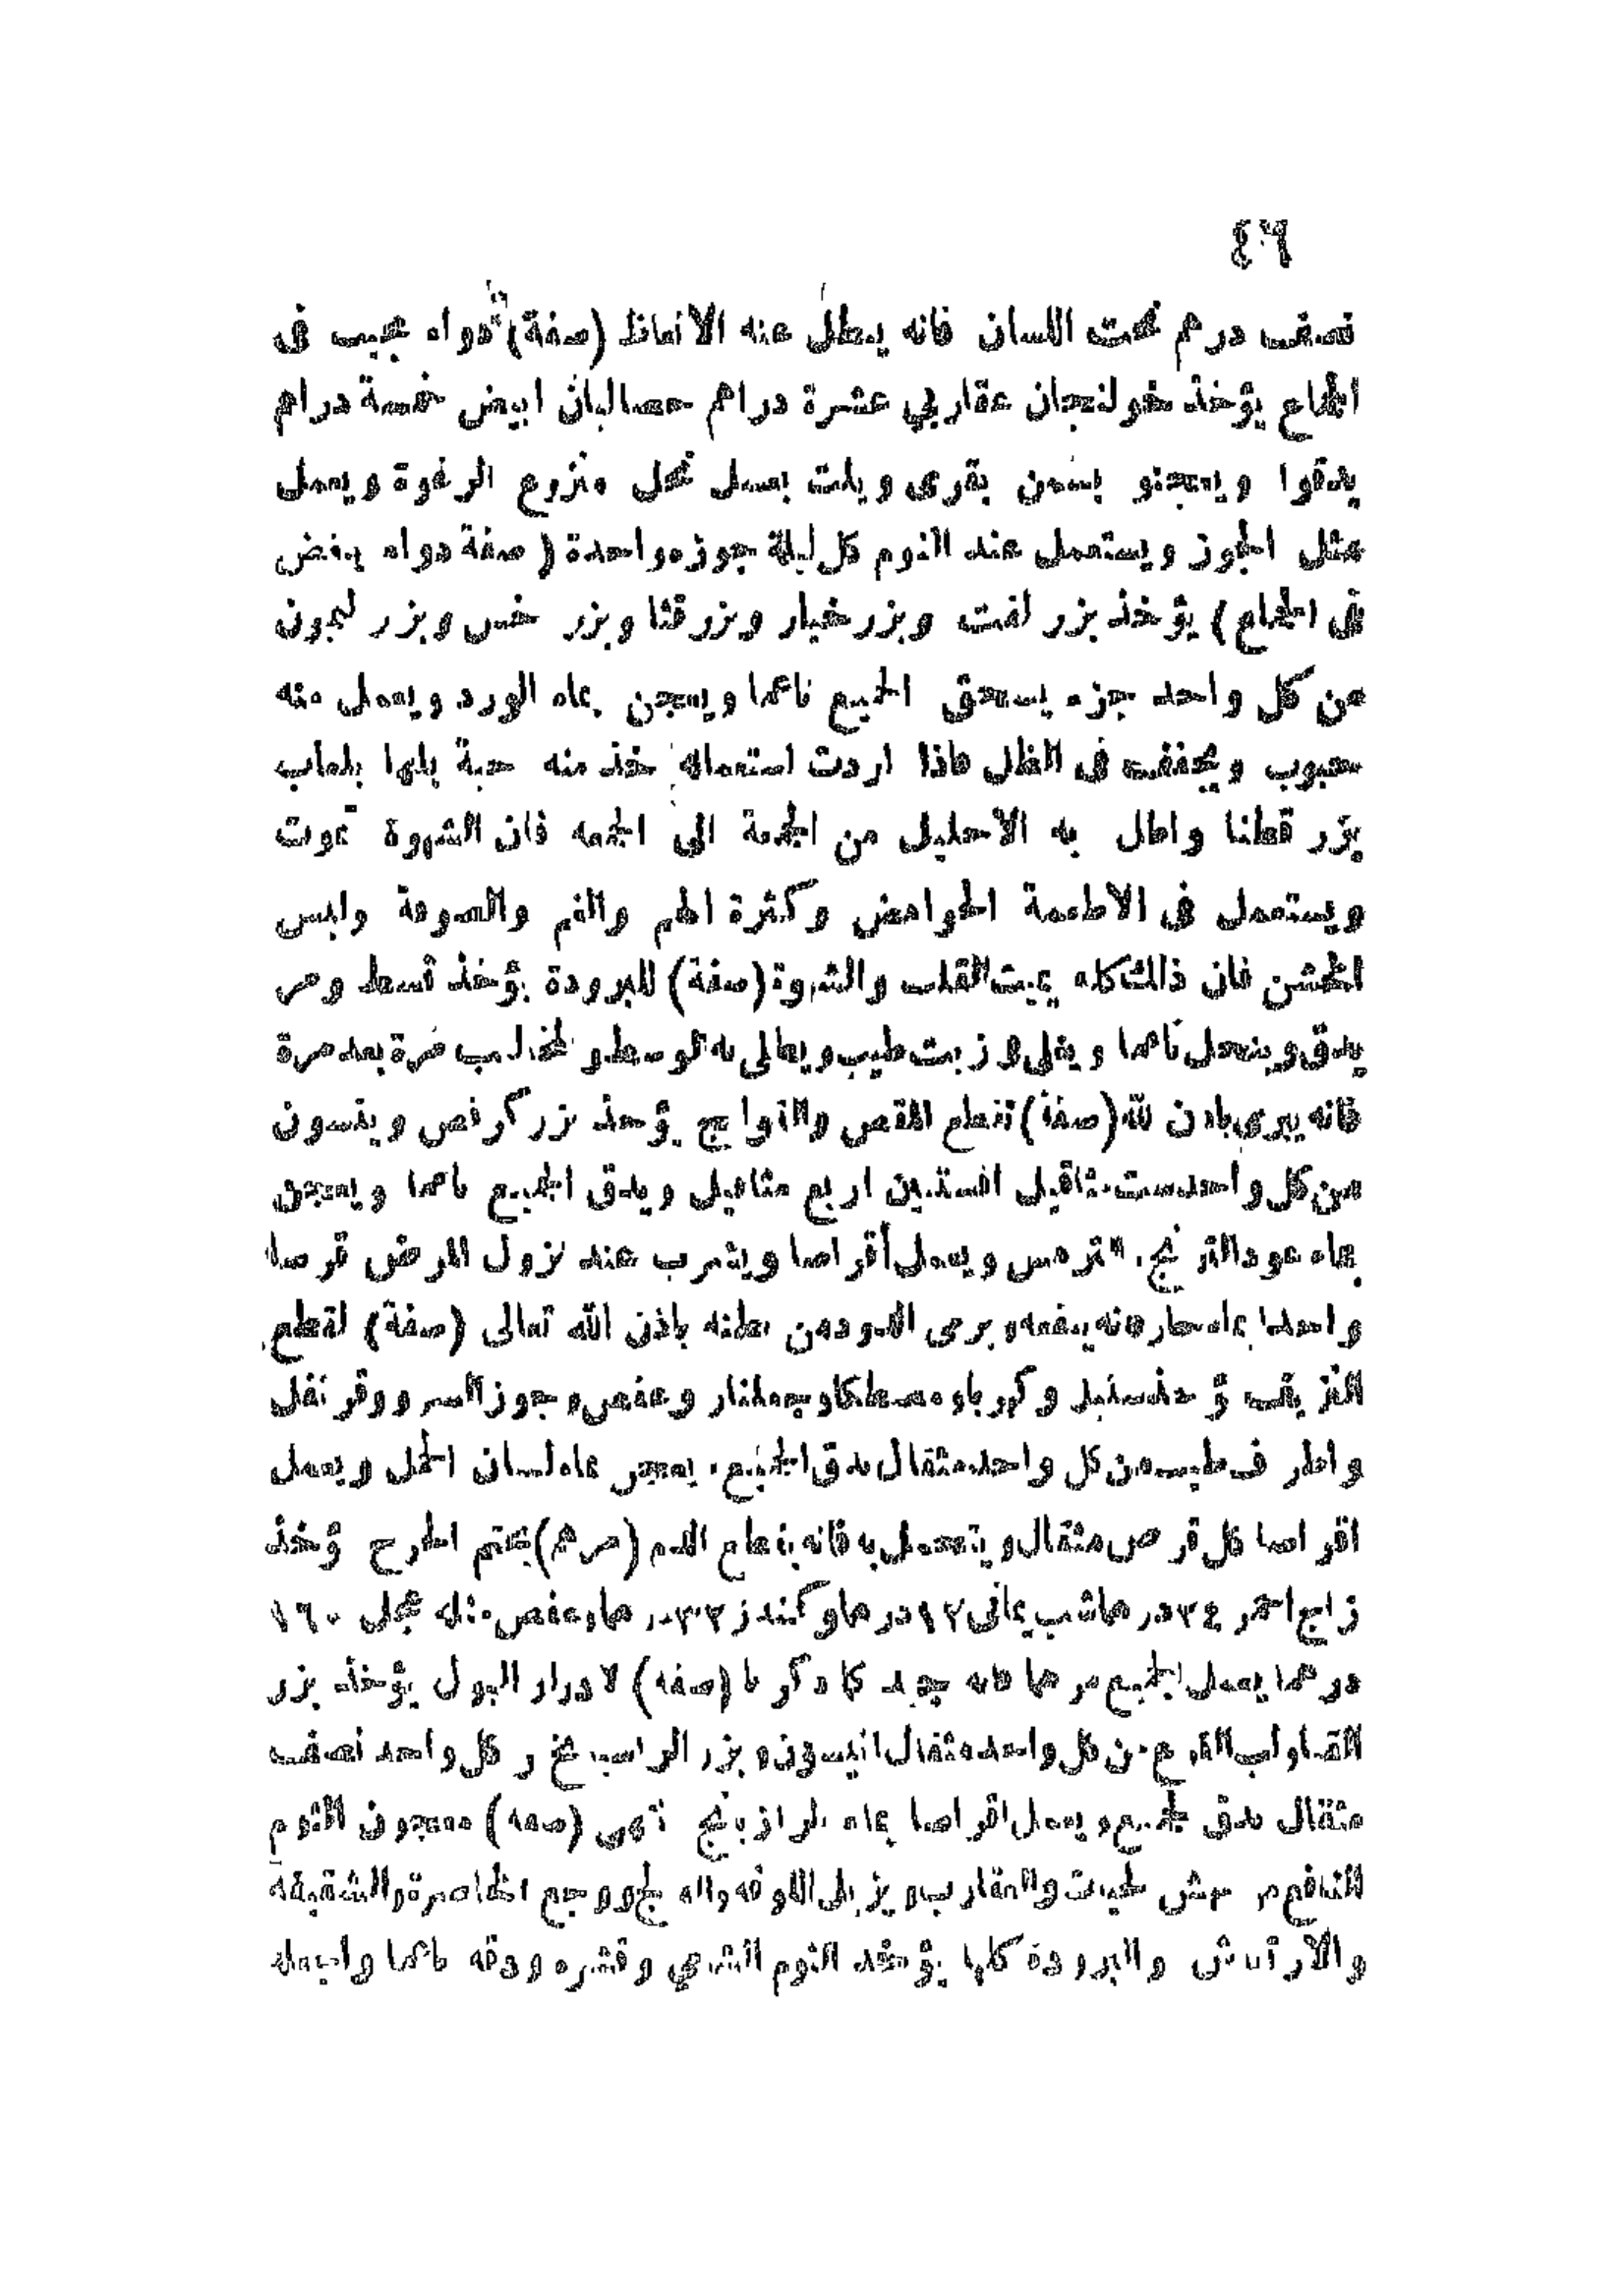 ٤٦
نصف درهم تحت اللسان فانه يبطل عنه الانعاظ (صفة) دواء عجيب فى
الجماع يؤخذ خولنجان عقاربي عشرة دراهم حصالبان ابيض خمسة دراهم
يدقوا ويعجنو بسمن بقرى ويلت بعسل نحل منزوع الرغوة ويعمل
مثل الجوز ويستعمل عند النوم كل ليلة جوزه واحدة (صفة دواء يبغض
فى الجماع) يؤخذ بزر لفت وبزر خيار وبزر قثا وبزر خس وبزر ليمون
من كل واحد جزء يسحق الجميع ناعما ويعجن بماء الورد ويعمل منه
حبوب ويجفف فى الظل فاذا اردت استعماله خذ منه حبة بلها بلعاب
بزر قطنا واطل به الاحليل من الجمعة الى الجمعه فان الشهوة تموت
ويستعمل فى الاطعمة الحوامض وكثرة الهم والغم والصومة ولبس
الخشن فان ذلك كله يميت القلب والشهوة (صفة) للبرودة يؤخذ قسط ومر
يدق وينخل ناعما ويغلى فى زيت طيب ويطلى به الوسط و مرة بعد مرة
فانه يبرى باذن الله (صفة) تنفع المغص يؤخذ بزر كرفس وينسون
من كل واحد ست مثاقيل افسنتين اربع مثاقيل ويدق الجميع ناعما ويعجن
بماء عود الترنج ويعمل أقراصا ويشرب عند نزول المرض قرصا
واحدا بماء حار فانه ينفعه ويرمى الدود من بطنه باذن الله تعالى (صفة) لقطع
النزيف يؤخذ سنبل وكهرباو مصطكا وجلنار وعفص وجوز السرو وقرنفل
واطراف طيب من كل واحد مثقال يدق الجميع ويعجن بماء لسان الحمل ويعمل
اقراصا كل قرص مثقال ويتحمل به فانه يقطع الدم (مرهم) يختم الجرح يؤخذ
زاج احمر ٣٤ درهما شب يمانى ١٢ درهما و ٣٣ درهما وعفص مثله نحل ١٦٠
درهما يعمل الجميع مرهما فانه جيد كما ذكرنا (صفه) لادرار البول يؤخذ بزر
القثا ولب القرع من كل واحد مثقال انيسون وبزر من كل واحد نصف
مثقال يدق الجميع ويعمل اقراصا بماء الرازيانج (صفه) معجون الثوم
النافع من نهش الحيات والعقارب ويزيل اللوقه والفالج ووجع الخاصرة والشقيقة
والارتعاش والبرودة كلها يؤخذ الثوم الشامي وقشره ودقه ناعما واجعله